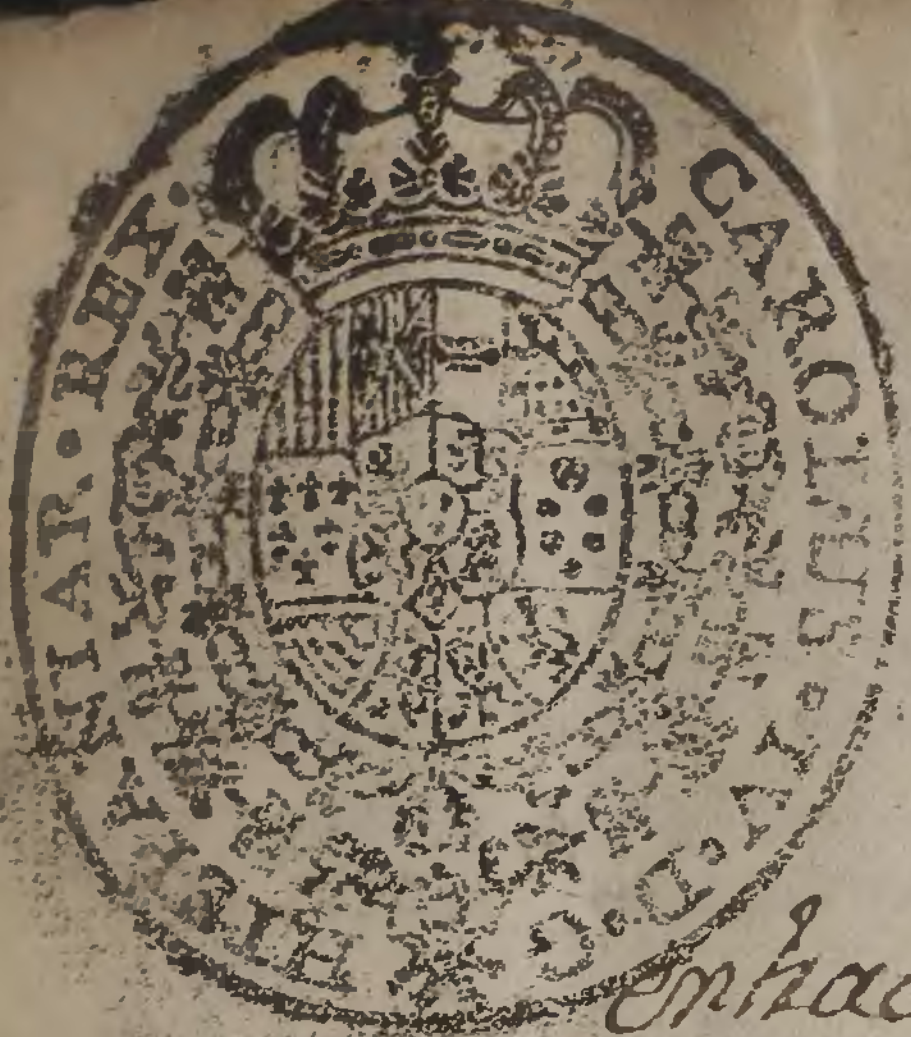 CAROLUS • IV • D • G • HISPANIAR • REX •
enhac